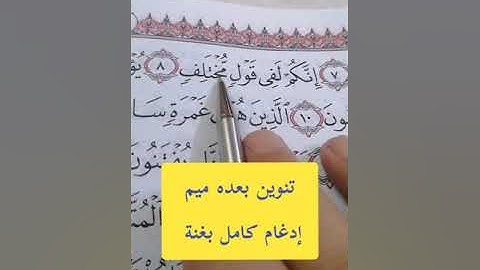 ٧ إِنَّكُمْ لَفِى قَوْلٍ مُّخْتَلِفٍ ٨ يُؤْ
ونَ ١٠ ٱلَّذِينَ غَمْرَةٍ سَا
يُفْتَنُونَ
تنوين بعده ميم
إدغام كامل بغنة